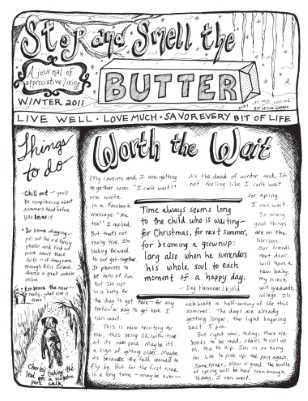 Stop and Smell the
BUTTER
A journal of
appreciative living
WINTER 2011
LIVE WELL • LOVE MUCH • SAVOR EVERY BIT OF LIFE
Things
to do
• Chill out - you'll
be complaining about
summer's heat before
you know it
• Do some digging -
pull out the old family
photos and find out
more about those
little old
through Ellis Island.
there's a great movie
• Embrace the new -
is really, what else is
new?
Charley
taking the
lead on a
park walk
Worth the Wait
My cousins and I are getting
together soon. "I can't wait!"
one wrote
in a Facebook
message. "Me
too!" I replied.
But that's not
really true. I'm
looking forward
to our get-together.
It promises to
be lots of fun.
but I'm not
in a hurry for
the day to get here - for any
particular day to get here. I
can wait.
This is new territory for
me, this being OK with time
at its own pace. Maybe it's
a sign of getting older. Maybe
it's because the fall seemed to
fly by. But for the first time
in a long time - maybe ever -
it's the dead of winter and I'm
not feeling like I can't wait
for spring.
I can wait.
So many
good things
are on the
horizon.
Our friends
next door
will have a
new baby.
My niece
will graduate
college. It's
celebrate a half-century of life this
summer. The days are already
getting longer, the light lingering
past 5 p.m.
But right now, today, there are
books to be read, chairs to curl up
in, tea to sip. I'm in no hurry
for life to pick up the pace again.
Sometimes, slow is good. The bustle
of spring will be here soon enough.
Today, I can wait.
Time always seems long
to the child who is waiting -
for Christmas, for next summer,
for becoming a grownup:
long also when he surrenders
his whole soul to each
moment of a happy day.
- Dag Hammarskjold